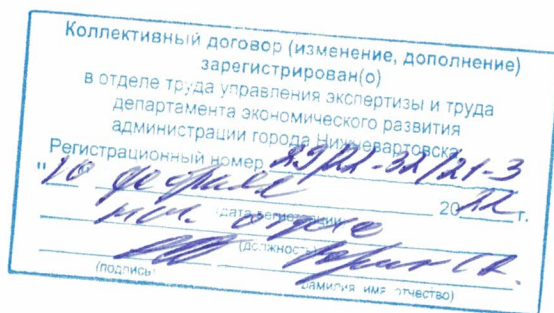 Коллективный договор (изменение, дополнение)
зарегистрирован(о)
в отделе труда управления экспертизы и труда
департамента экономического развития
администрации города Нижневартовска
Регистрационный номер 29/22-32/21-3
"10 февраля 2022 г.
дата регистрации
нач. отдела
(должность)
(подпись) фамилия, имя, отчество)